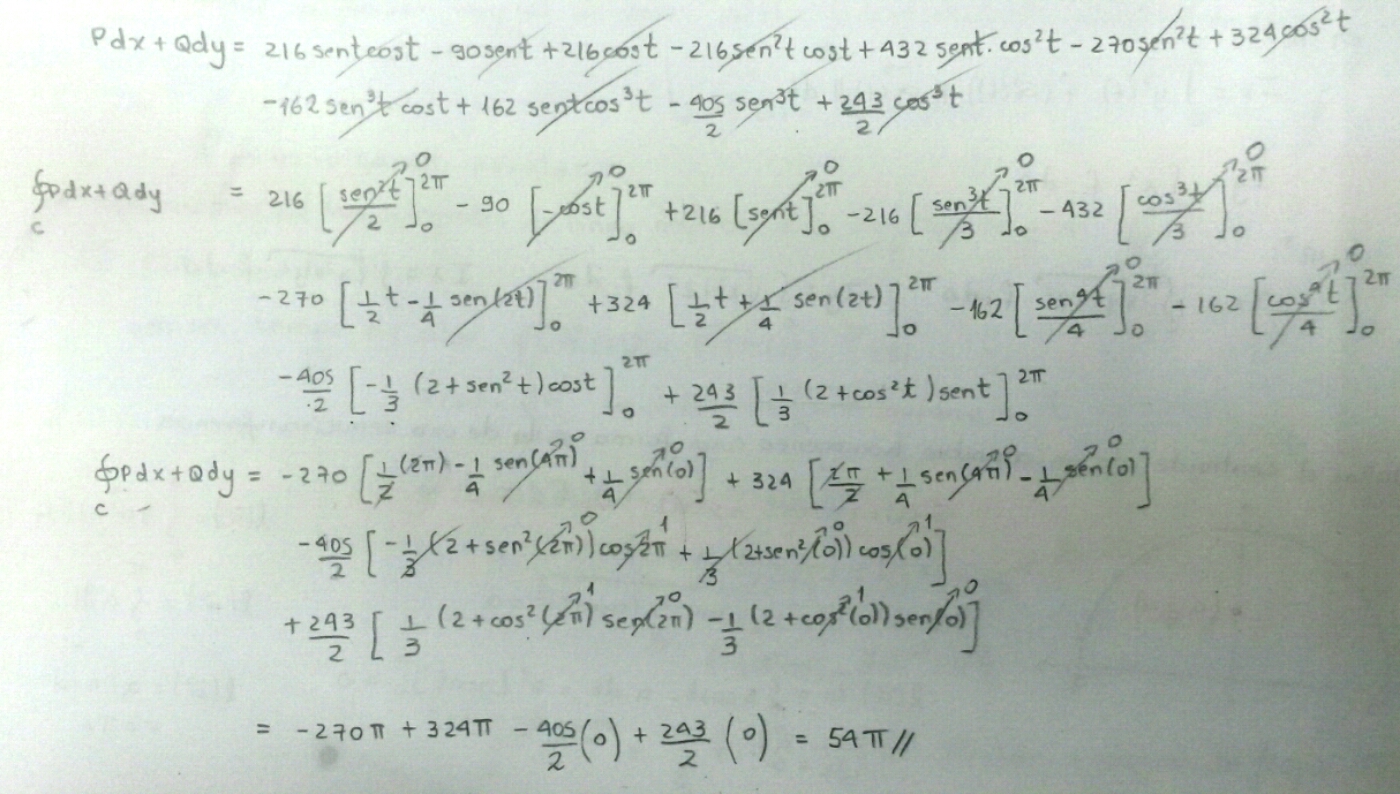 Pdx + Qdy = 216 sent cost - 90 sent + 216 cost - 216 sen²t cost + 432 sent. cos²t - 270 sen²t + 324 cos²t
-162 sen³t cost + 162 sent cos³t - 405/2 sen³t + 243/2 cos³t
∮c Pdx + Qdy = 216 [sen²t/2]₀^2π → 0 - 90 [-cost]₀^2π → 0 + 216 [sent]₀^2π → 0 - 216 [sen³t/3]₀^2π → 0 - 432 [cos³t/3]₀^2π → 0
-270 [1/2 t - 1/4 sen(2t)]₀^2π + 324 [1/2 t + 1/4 sen(2t)]₀^2π - 162 [sen⁴t/4]₀^2π → 0 - 162 [cos⁴t/4]₀^2π → 0
-405/2 [-1/3 (2 + sen²t) cost]₀^2π + 243/2 [1/3 (2 + cos²t) sent]₀^2π
∮c Pdx + Qdy = -270 [1/2 (2π) - 1/4 sen(4π) → 0 + 1/4 sen(0) → 0] + 324 [2π/2 + 1/4 sen(4π) → 0 - 1/4 sen(0) → 0]
-405/2 [-1/3 (2 + sen²(2π) → 0) cos2π → 1 + 1/3 (2 + sen²(0) → 0) cos(0) → 1]
+ 243/2 [1/3 (2 + cos²(2π) → 1 sen(2π) → 0 - 1/3 (2 + cos²(0) → 1) sen(0) → 0]
= -270π + 324π - 405/2 (0) + 243/2 (0) = 54π //